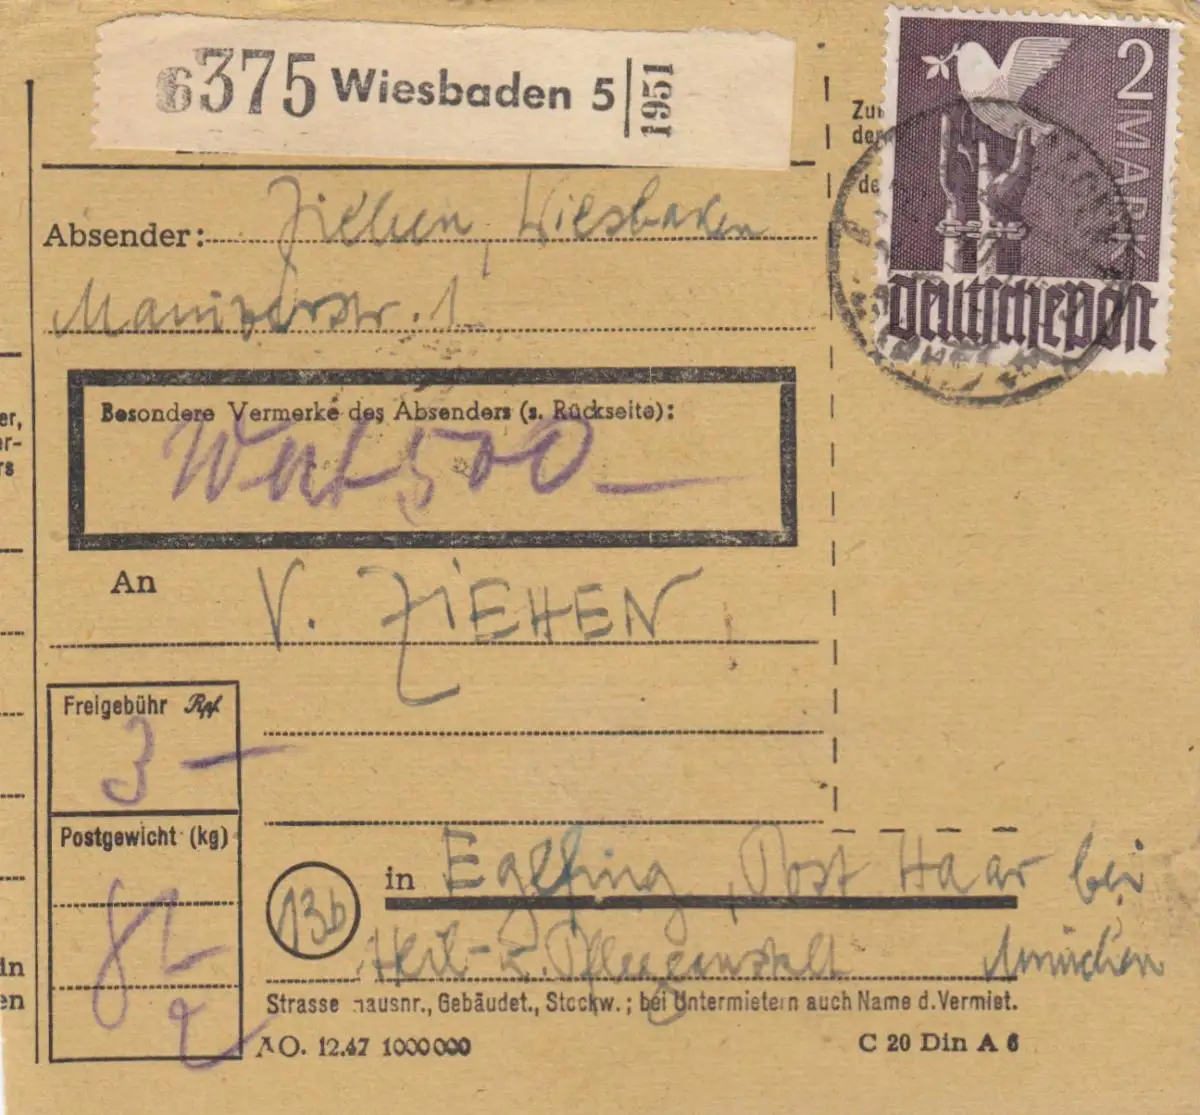 6375 Wiesbaden 5 1951
2 MARK
deutsche post
Zur
der
de
Absender: Ziehen, Wiesbaden
str. 1
Besondere Vermerke des Absenders (s. Rückseite):
Wert 500 —
An V. ZIEHEN
er,
er-
rs
Freigebühr Rpf
3 —
Postgewicht (kg)
8 1/2
13b
in Eglfing, Post Haar bei
Heil- u. Pflegeanstalt München
in
en
Strasse Hausnr., Gebäudet., Stockw.; bei Untermietern auch Name d. Vermiet.
AO. 12.47 1000000
C 20 Din A 6